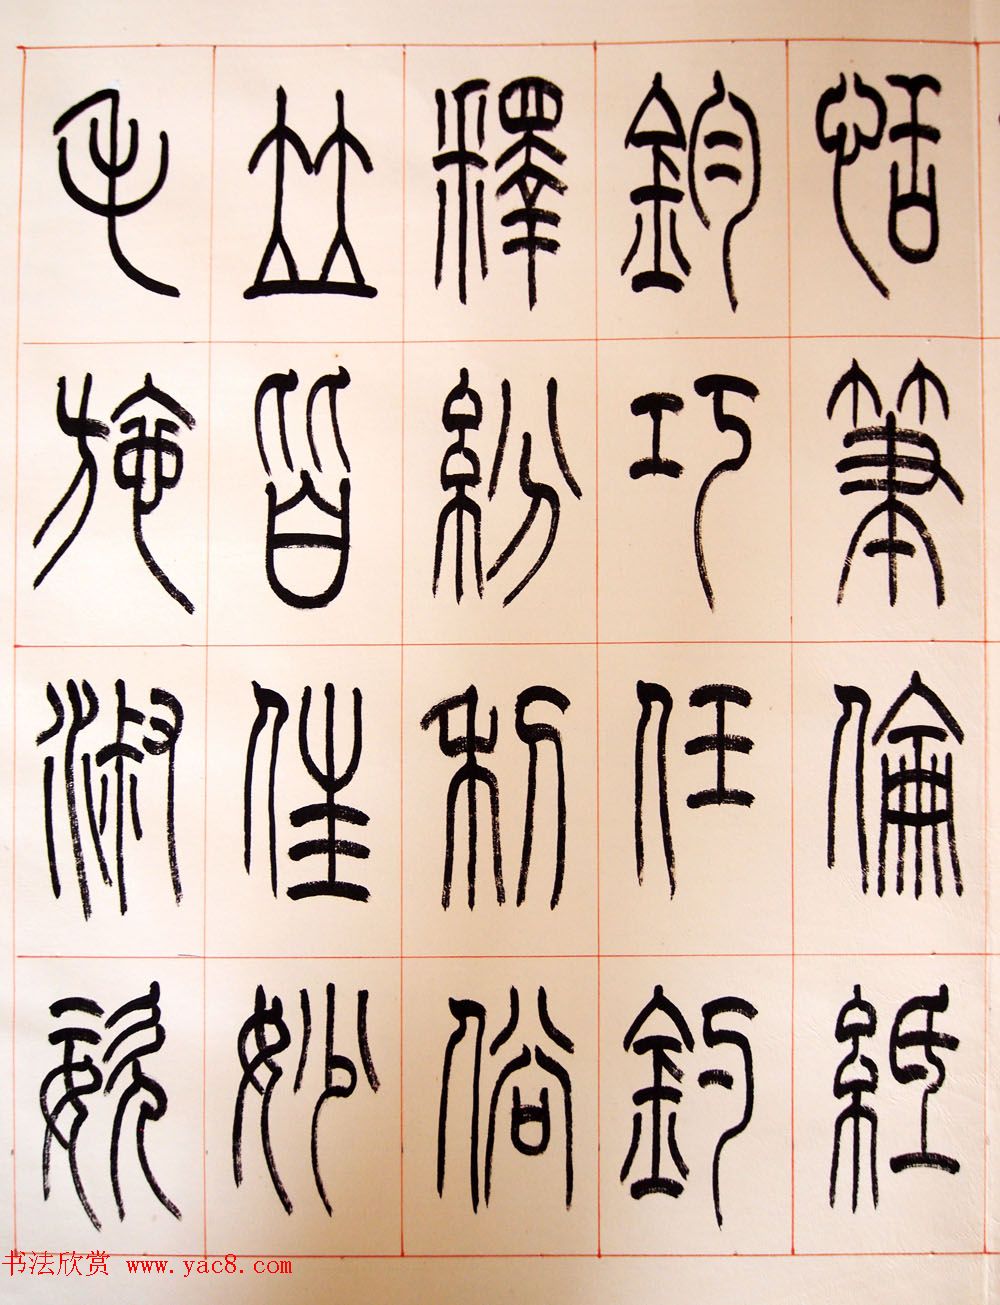 恬筆倫紙
鈞巧任釣
釋紛利俗
竝皆佳妙
毛施淑姿
书法欣赏 www.yac8.com